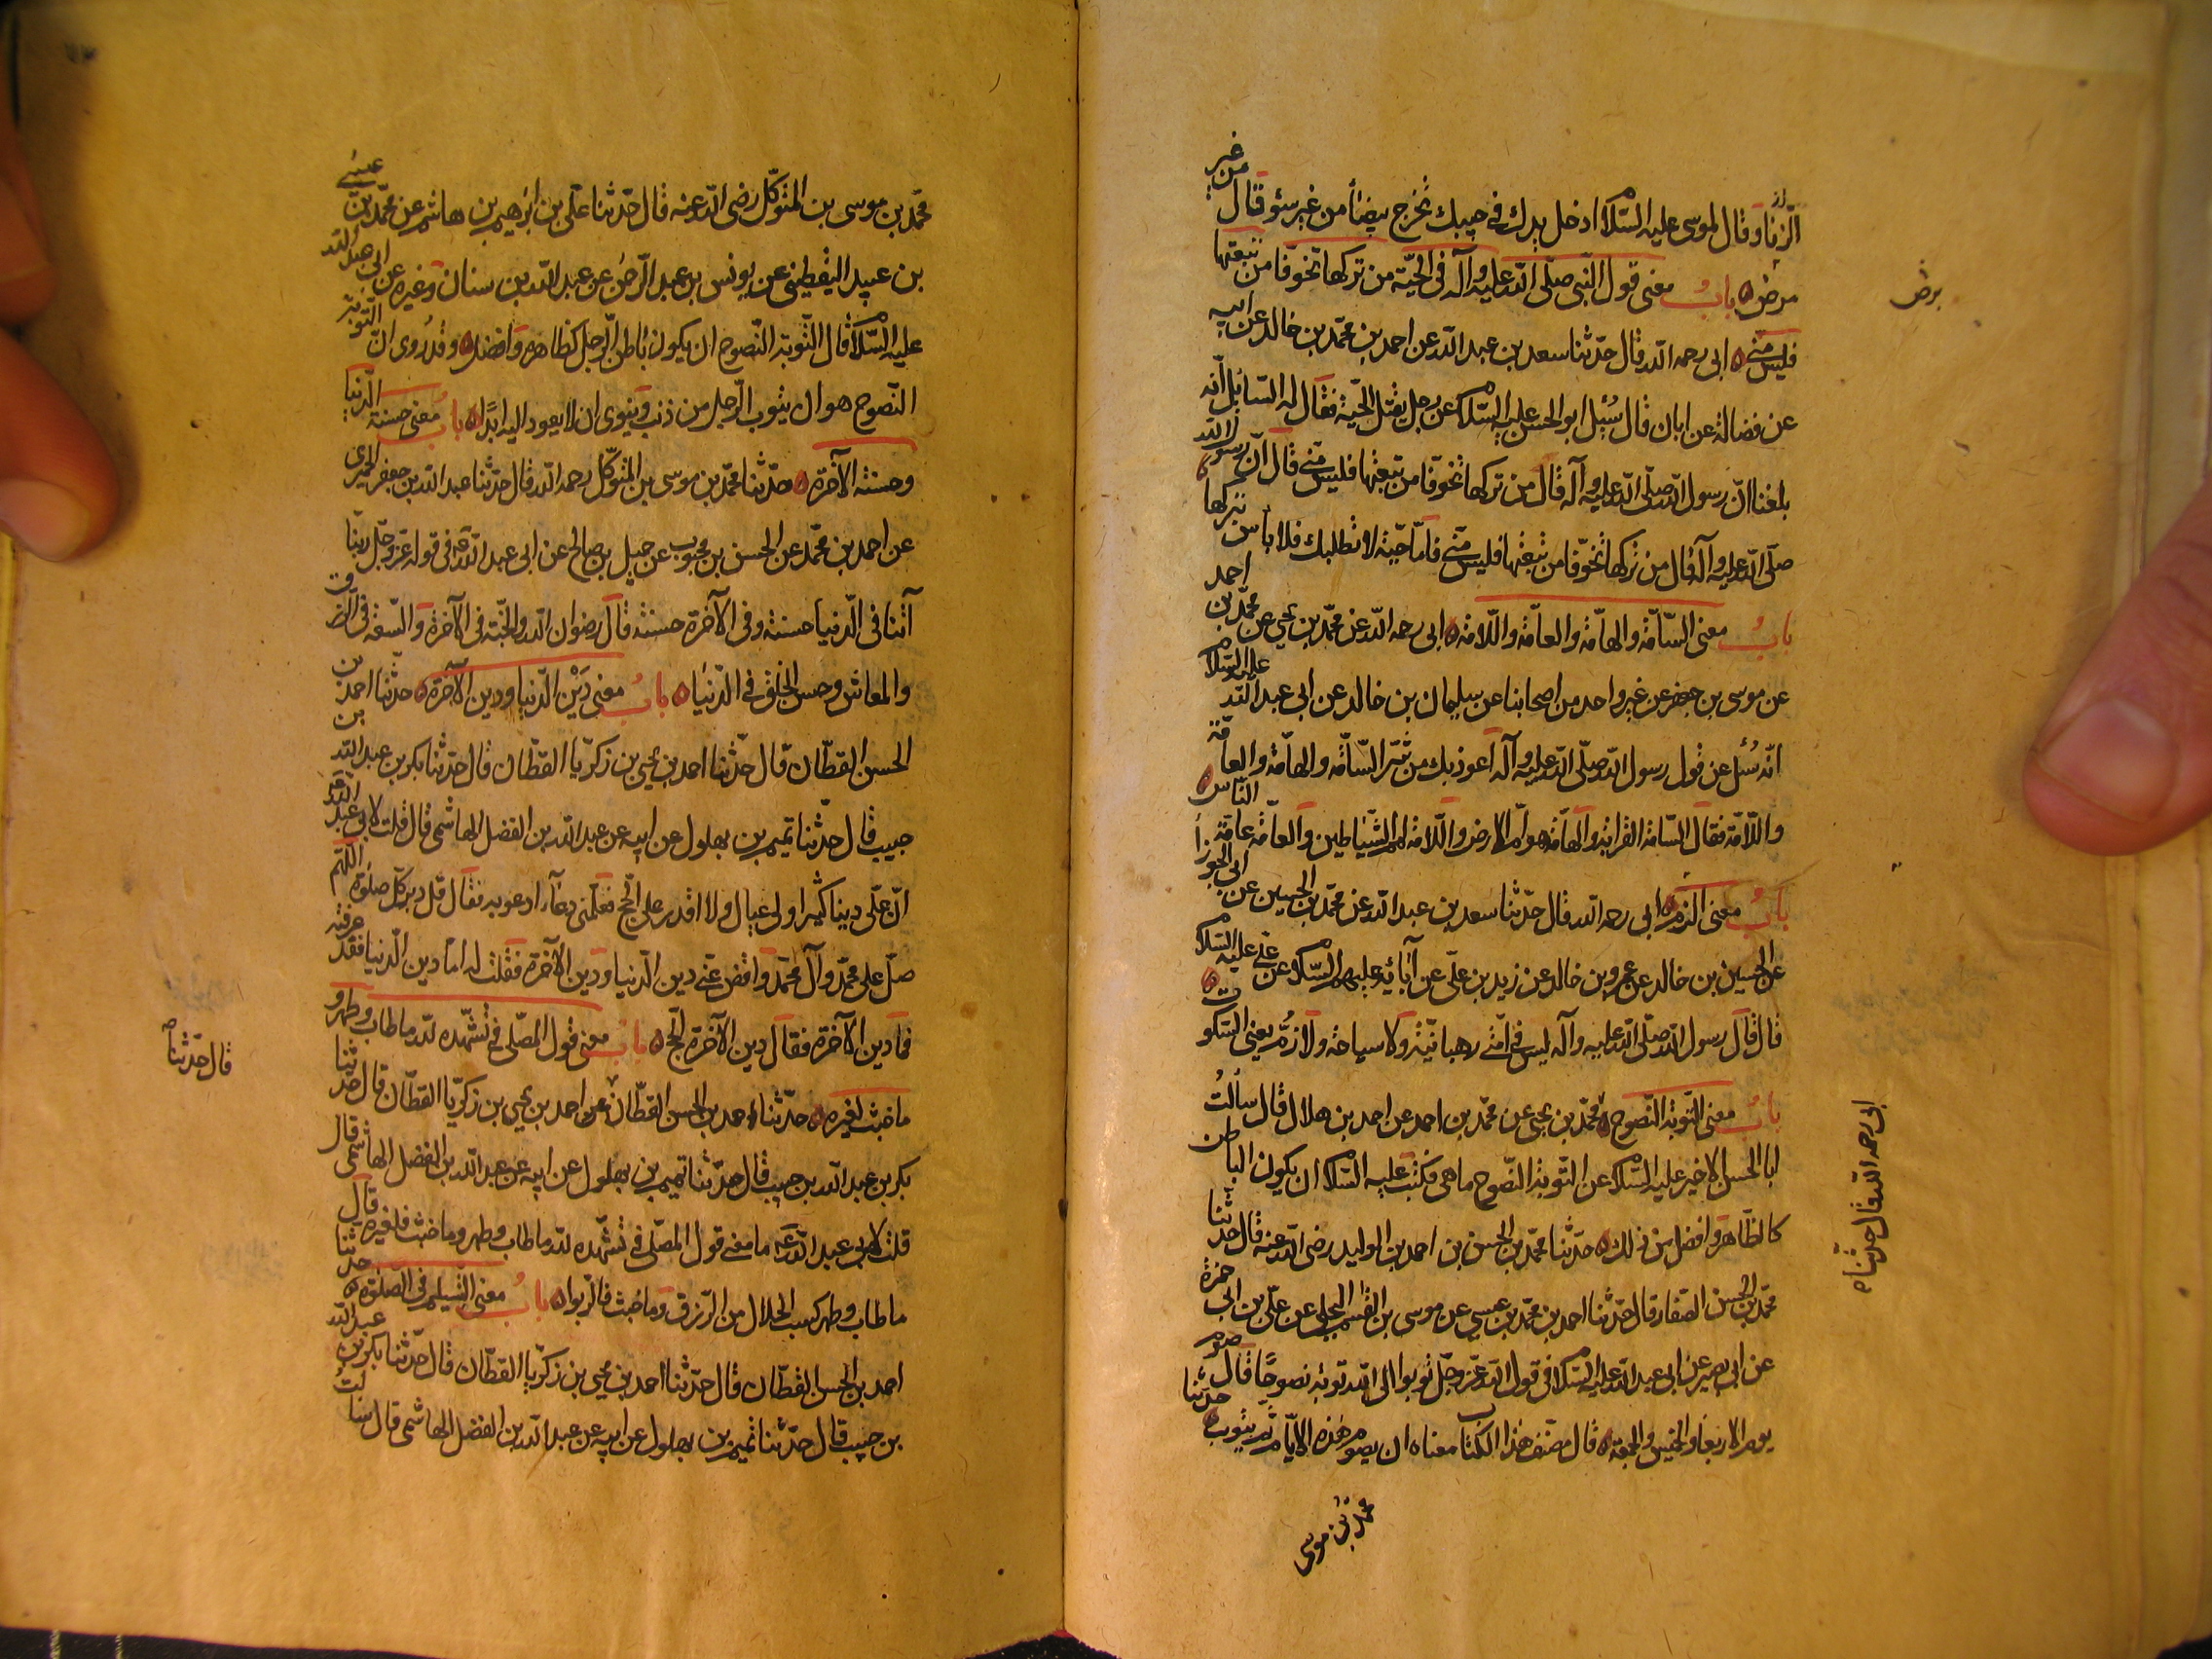 الزنا وقال لموسى عليه السلام ادخل يدك في جيبك تخرج بيضاء من غير سوء قال من غير
مرض باب معنى قول النبي صلى الله عليه وآله في الحية من تركها تخوفا من تبعتها
برص
فليس مني ابي رحمه الله قال حدثنا سعد بن عبد الله عن احمد بن محمد بن خالد عن ابيه
عن فضالة عن ابان قال سئل ابو الحسن عليه السلام عن رجل يقتل الحية فقال له السائل انه
بلغنا ان رسول الله صلى الله عليه وآله قال من تركها تخوفا من تبعتها فليس مني قال ان رسول الله
صلى الله عليه وآله قال من تركها تخوفا من تبعتها فليس مني فاما حية لا تطلبك فلا باس بتركها
باب معنى السامة والهامة والعامة واللامة ابي رحمه الله عن محمد بن يحيى عن محمد بن احمد
عن موسى بن جعفر عن غير واحد من اصحابنا عن سليمان بن خالد عن ابي عبد الله عليه السلام
انه سئل عن قول رسول الله صلى الله عليه وآله اعوذ بك من شر السامة والهامة والعامة
واللامة فقال السامة القرابة والهامة هوام الارض واللامة لمم الشياطين والعامة عامة الناس
باب معنى الزم ابي رحمه الله قال حدثنا سعد بن عبد الله عن محمد بن الحسين عن ابي الجوزا
عن الحسين بن خالد عن عمرو بن خالد عن زيد بن علي عن آبائه عليهم السلام عن علي عليه السلام
قال قال رسول الله صلى الله عليه وآله ليس في امتي رهبانية ولا سياحة ولا زم يعني السكوت
باب معنى التوبة النصوح محمد بن يحيى عن محمد بن احمد عن احمد بن هلال قال سألت
ابي رحمه الله قال حدثنا
ابا الحسن الاخير عليه السلام عن التوبة النصوح ما هي فكتب عليه السلام ان يكون الباطن
كالظاهر وافضل من ذلك حدثنا محمد بن الحسن بن احمد بن الوليد رضي الله عنه قال حدثنا
محمد بن الحسن الصفار قال حدثنا احمد بن محمد بن عيسى عن موسى بن القسم البجلي عن علي بن ابي حمزة
عن ابي بصير عن ابي عبد الله عليه السلام في قول الله عز وجل توبوا الى الله توبة نصوحا قال صوم
يوم الاربعا والخميس والجمعة قال مصنف هذا الكتاب معناه ان يصوم هذه الايام ثم يتوب حدثنا
محمد بن موسى
محمد بن موسى بن المتوكل رضي الله عنه قال حدثنا علي بن ابرهيم بن هاشم عن محمد بن عيسى
بن عبيد اليقطيني عن يونس بن عبد الرحمن عن عبد الله بن سنان وغيره عن ابي عبد الله
عليه السلام قال التوبة النصوح ان يكون باطن الرجل كظاهره وافضل وقد روى ان التوبة
النصوح هو ان يتوب الرجل من ذنب وينوى ان لا يعود اليه ابدا باب معنى حسنة الدنيا
وحسنة الآخرة حدثنا محمد بن موسى بن المتوكل رحمه الله قال حدثنا عبد الله بن جعفر الحميري
عن احمد بن محمد عن الحسن بن محبوب عن جميل بن صالح عن ابي عبد الله ع في قوله عز وجل ربنا
آتنا في الدنيا حسنة وفي الآخرة حسنة قال رضوان الله والجنة في الآخرة والسعة في الرزق
والمعاش وحسن الخلق في الدنيا باب معنى دين الدنيا ودين الآخرة حدثنا احمد بن
الحسن القطان قال حدثنا احمد بن يحيى بن زكريا القطان قال حدثنا بكر بن عبد الله بن
حبيب قال حدثنا تميم بن بهلول عن ابيه عن عبد الله بن الفضل الهاشمي قال قلت لابي عبد الله ع
ان علي دينا كثيرا ولي عيال ولا اقدر على الحج فعلمني دعآء ادعو به فقال قل دبر كل صلوة اللهم
صل على محمد وآل محمد واقض عني دين الدنيا ودين الآخرة فقلت له اما دين الدنيا فقد عرفته
فما دين الآخرة فقال دين الآخرة الحج باب معنى قول المصلي في تشهده لله ما طاب وطهر و
ما خبث لغيره حدثنا احمد بن الحسن القطان عن احمد بن يحيى بن زكريا القطان قال حدثنا
قال حدثنا صح
بكر بن عبد الله بن حبيب قال حدثنا تميم بن بهلول عن ابيه عن عبد الله بن الفضل الهاشمي قال
قلت لابي عبد الله ع ما معنى قول المصلي في تشهده لله ما طاب وطهر وما خبث فلغيره قال
ما طاب وطهر كسب الحلال من الرزق وما خبث فالربوا باب معنى التسليم في الصلوة حدثنا
احمد بن الحسن القطان قال حدثنا احمد بن يحيى بن زكريا القطان قال حدثنا بكر بن عبد الله
بن حبيب قال حدثنا تميم بن بهلول عن ابيه عن عبد الله بن الفضل الهاشمي قال سالت